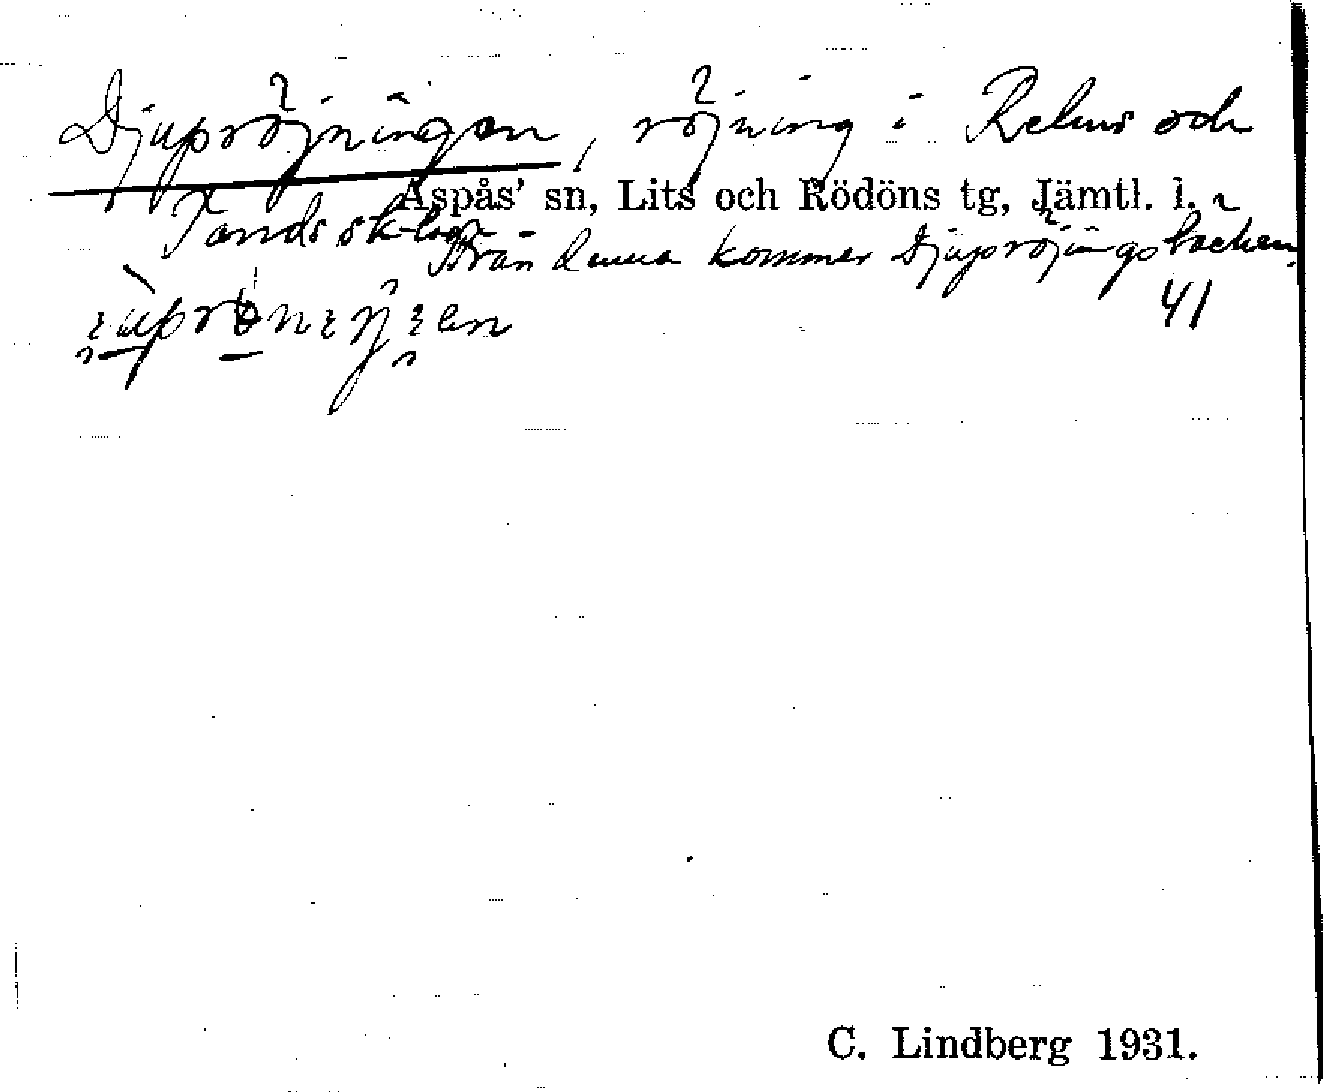 Djupröjningen, röjning i Relus och
Aspås' sn, Lits och Rödöns tg, Jämtl. l.
Tands sk-lag
Från denna kommer Djupröjngsbäcken.
41
C. Lindberg 1931.